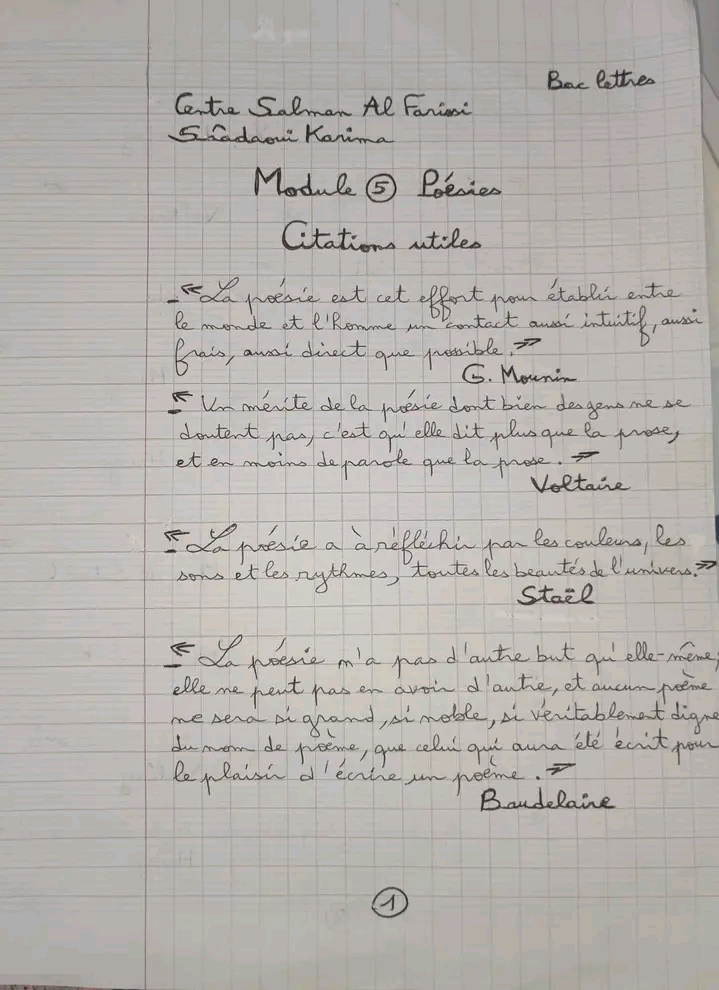 Bac lettres
Centre Salman Al Farissi
Sâadaoui Karima
Module 5 Poésies
Citations utiles
- « La poésie est cet effort pour établir entre
le monde et l'homme un contact aussi intuitif, aussi
frais, aussi direct que possible. »
G. Mounin
- « Un mérite de la poésie dont bien des gens ne se
doutent pas, c'est qu'elle dit plus que la prose,
et en moins de parole que la prose. »
Voltaire
- « La poésie a à réfléchir par les couleurs, les
sons et les rythmes, toutes les beautés de l'univers. »
Staël
- « La poésie n'a pas d'autre but qu'elle-même;
elle ne peut pas en avoir d'autre, et aucun poème
ne sera si grand, si noble, si véritablement digne
du nom de poème, que celui qui aura été écrit pour
le plaisir d'écrire un poème. »
Baudelaire
1